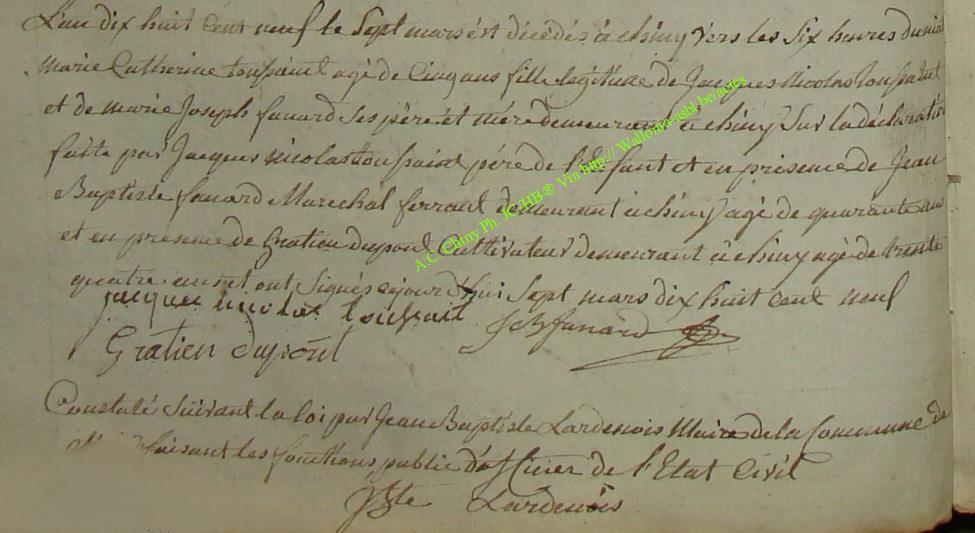 L'an dix huit cent neuf le Sept mars est décédés à chiny vers les Six heures du
marie Catherine toussaint agé de Cinq ans fille légitime de Jacques Nicolas toussaint
et de marie Joseph fanard Ses père et mère demeurant a chiny Sur la déclaration
faite par Jacques nicolas toussaint père de l'enfant et en présence de Jean
Baptiste fanard Marechal ferrant demeurant à chiny agé de quarante
et en présence de Gratien dupont Cultivateur demeurant à chiny agé de trente
quatre ans et ont Signés cejourd'hui Sept mars dix huit cent neuf
jacque nicolas toussait
JBfanard
Gratien dupont
Constaté Suivant la loi par Jean Baptiste Lardenois Maire de la Commune de
faisant les fonctions public d'officier de l'Etat Civil
JBte Lardenois
A.C. Chiny Ph. JC HB® Via http://Wallonia-asbl.be/actes